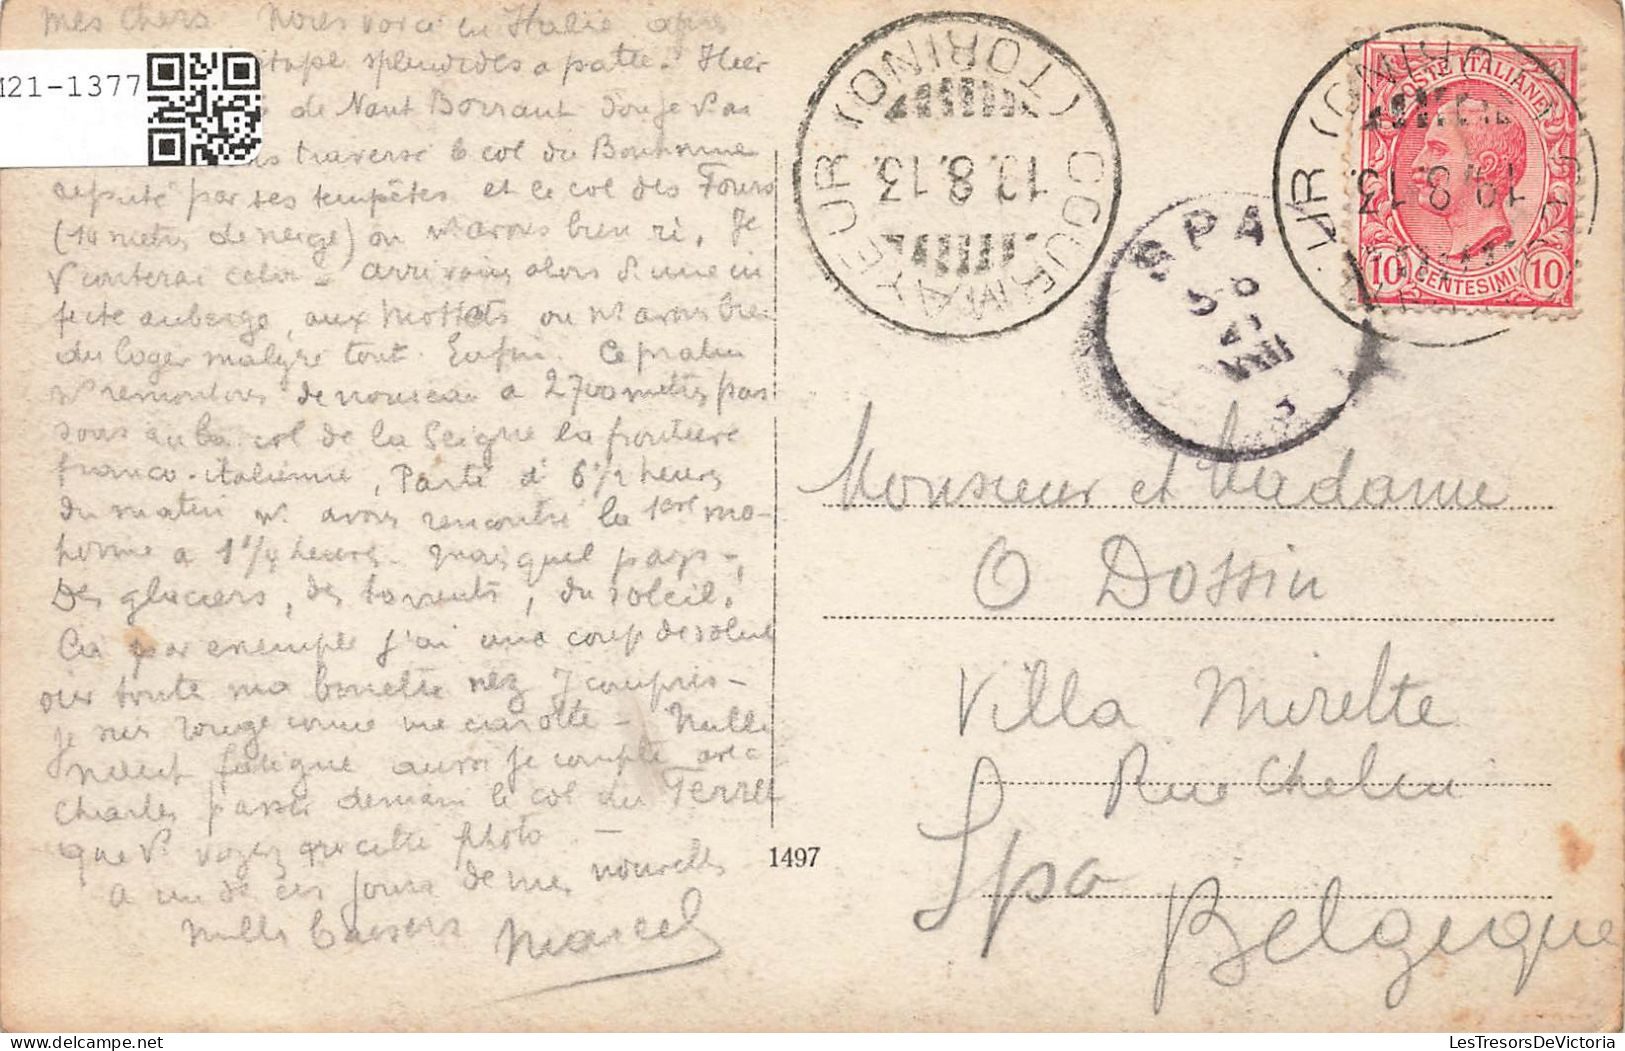 Mes chers Nous voici en Italie après
étape splendides a patte. Hier
M21-1377
de Nant Borrant d'où je v. ai
traversé le col du Bonhomme
réputé par ses tempêtes et le col des Fours
(14 mètres de neige) ou n. avons bien ri. Je
v. conterai cela. arrivain alors d. une in
fecte auberge, aux Mottets ou n. avons bien
du loger malgré tout. Enfin. Ce matin
n. remontons de nouveau a 2700 metres pas
sons au la col de la Seigne la frontiere
franco-italienne, Parti à 6 1/2 heures
du matin n. avons rencontré la 1ere
a 1 1/4 heures. Mais quel pays,
Des glaciers, des torrents, du soleil.
Ca par exemple j'ai un coup de soleil
sur toute ma binette nez y compris -
je suis rouge comme une carotte - Nulle
fatigue aussi je compte avec
Charles passer demain le col du Ferret
que v. voyez sur cette photo -
A un de ces jours de mes nouvelles
Mille baisers Marcel
COURMAYEUR (TORINO)
19.8.13
COURMAYEUR (TORINO)
19.8.13
POSTE ITALIANE
10 CENTESIMI 10
SPA
VIII
Monsieur et Madame
O Dossin
Villa Mirelte
Rue Chelui
Spa
Belgique
1497
LesTresorsDeVictoria.com